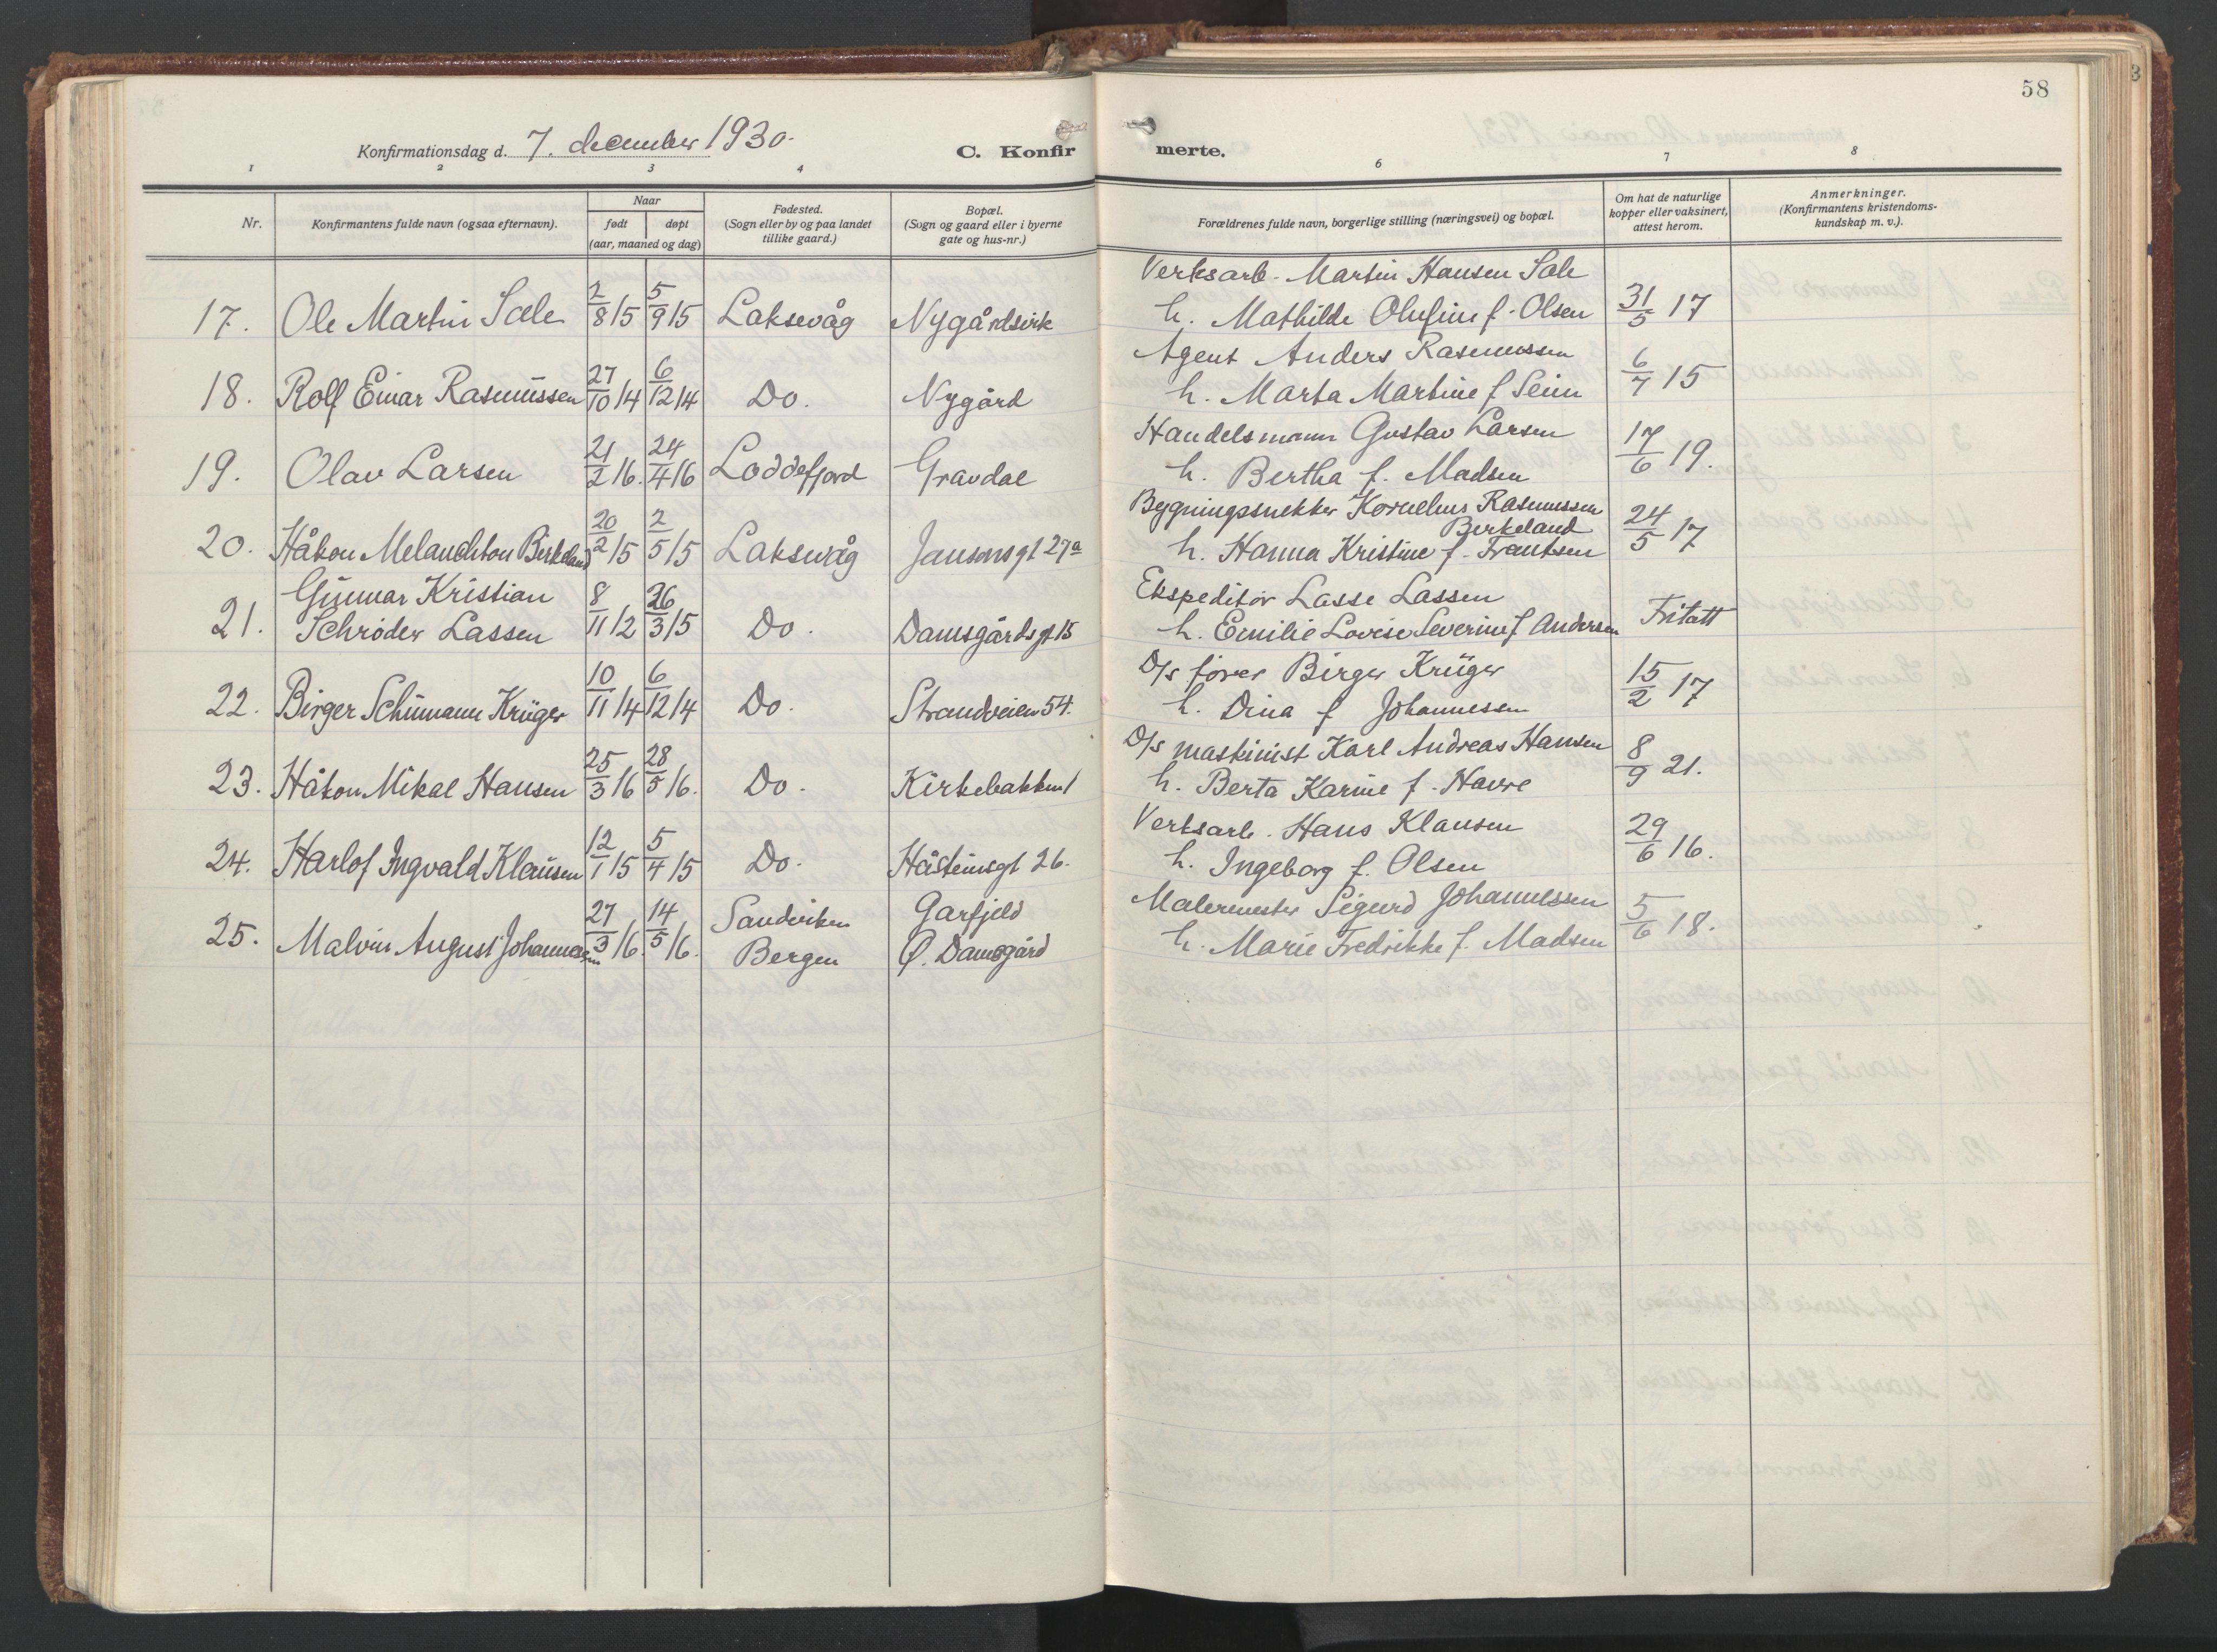 58
Konfirmationsdag d. 7. december 1930.
C. Konfir
merte.
1 2 3 4 5 6 7 8
Nr.
Konfirmantens fulde navn (ogsaa efternavn).
Naar
født døpt
(aar, maaned og dag)
Fødested.
(Sogn eller by og paa landet
tillike gaard.)
Bopæl.
(Sogn og gaard eller i byerne
gate og hus-nr.)
Forældrenes fulde navn, borgerlige stilling (næringsvei) og bopæl.
Om hat de naturlige
kopper eller vaksinert,
attest herom.
Anmerkninger.
(Konfirmantens kristendoms-
kundskap m. v.).
Verksarb. Martin Hansen Sæle
17. Ole Martin Sæle 2/8 15 5/9 15 Laksevåg Nygårdsvik h. Mathilde Olufine f. Olsen 31/5 17
Agent Anders Rasmussen
18. Rolf Einar Rasmussen 27/10 14 6/12 14 Do. Nygård h. Marta Martine f Seim 6/7 15
Handelsmann Gustav Larsen
19. Olav Larsen 21/2 16. 24/4 16 Loddefjord Gravdal h. Bertha f. Madsen 17/6 19.
Bygningssnekker Kornelius Rasmussen
Birkeland
20. Håkon Melanchton Birkeland 20/2 15 2/5 15 Laksevåg Jansonsgt 27a h. Hanna Kristine f. Frantsen 24/5 17
Gunnar Kristian
Ekspeditør Lasse Lassen
21. Schrøder Lassen 8/11 12 26/3 15 Do. Damsgårdsgt 15 h. Emilie Lovise Severine f Andersen Fritatt
D/s fører Birger Krüger
22. Birger Schumann Krüger 10/11 14 6/12 14 Do. Strandveien 54. h. Dina f Johannessen 15/2 17
D/s maskinist Karl Andreas Hansen
23. Håkon Mikal Hansen 25/3 16 28/5 16. Do. Kirkebakken 1 h. Berta Karine f. Havre 8/9 21.
Verksarb. Hans Klausen
24. Harlof Ingvald Klausen 12/1 15 5/4 15 Do. Håsteinsgt 26. h. Ingeborg f. Olsen 29/6 16.
Sandviken Garfjeld Malermester Sigurd Johannessen
25. Malvin August Johannessen 27/3 16. 14/5 16. Bergen Ø. Damsgård h. Marie Fredrikke f. Madsen 5/6 18.